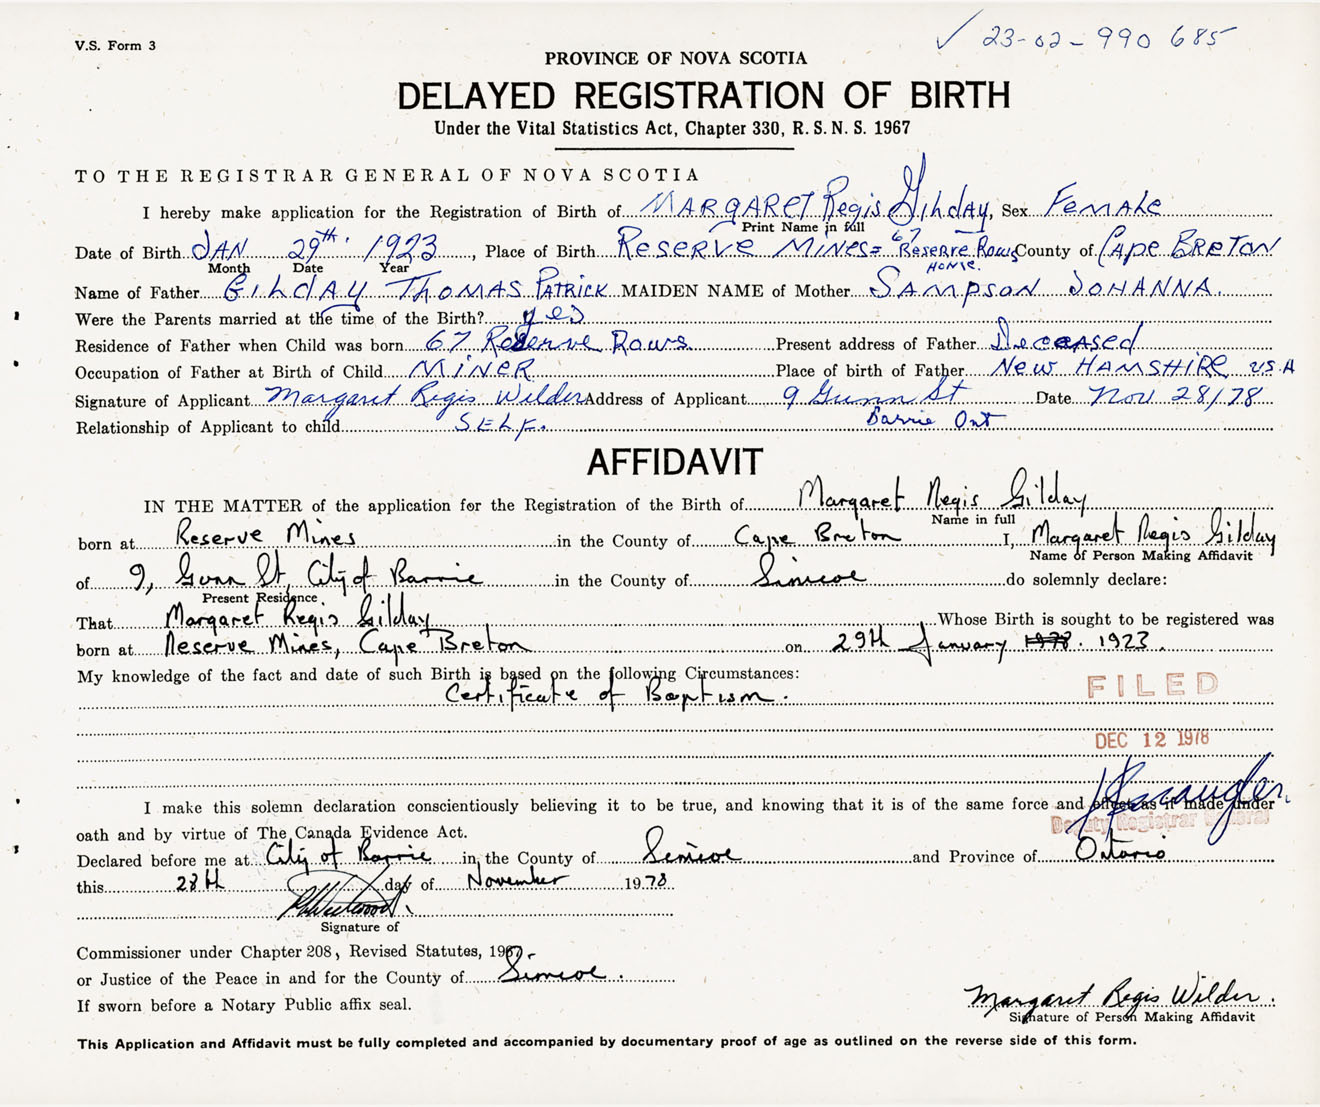 V.S. Form 3
✓ 23-02-990 685
PROVINCE OF NOVA SCOTIA
DELAYED REGISTRATION OF BIRTH
Under the Vital Statistics Act, Chapter 330, R. S. N. S. 1967
TO THE REGISTRAR GENERAL OF NOVA SCOTIA
I hereby make application for the Registration of Birth of MARGARET Regis Gilday, Sex FEMALE
Print Name in full
Date of Birth JAN 29th. 1923, Place of Birth RESERVE MINES= 67 Reserve Rows County of CAPE BRETON
Month Date Year HOME.
Name of Father GILDAY THOMAS PATRICK MAIDEN NAME of Mother SAMPSON JOHANNA.
Were the Parents married at the time of the Birth? yes
Residence of Father when Child was born 67 Reserve Rows Present address of Father Deceased
Occupation of Father at Birth of Child MINER Place of birth of Father NEW HAMSHIRE U.S.A
Signature of Applicant Margaret Regis Wilder Address of Applicant 9 Gunn St Date Nov 28/78
Relationship of Applicant to child SELF. Barrie Ont
AFFIDAVIT
IN THE MATTER of the application for the Registration of the Birth of Margaret Regis Gilday
Name in full
born at Reserve Mines in the County of Cape Breton I, Margaret Regis Gilday
Name of Person Making Affidavit
of 9, Gunn St, City of Barrie in the County of Simcoe do solemnly declare:
Present Residence
That Margaret Regis Gilday Whose Birth is sought to be registered was
born at Reserve Mines, Cape Breton on 29th January 1923.
My knowledge of the fact and date of such Birth is based on the following Circumstances:
Certificate of Baptism.
FILED
DEC 12 1978
I make this solemn declaration conscientiously believing it to be true, and knowing that it is of the same force and effect as if made under
Deputy Registrar General
oath and by virtue of The Canada Evidence Act.
Declared before me at City of Barrie in the County of Simcoe and Province of Ontario
this 28th day of November 1978
Signature of
Commissioner under Chapter 208, Revised Statutes, 1967
or Justice of the Peace in and for the County of Simcoe.
If sworn before a Notary Public affix seal.
Margaret Regis Wilder.
Signature of Person Making Affidavit
This Application and Affidavit must be fully completed and accompanied by documentary proof of age as outlined on the reverse side of this form.